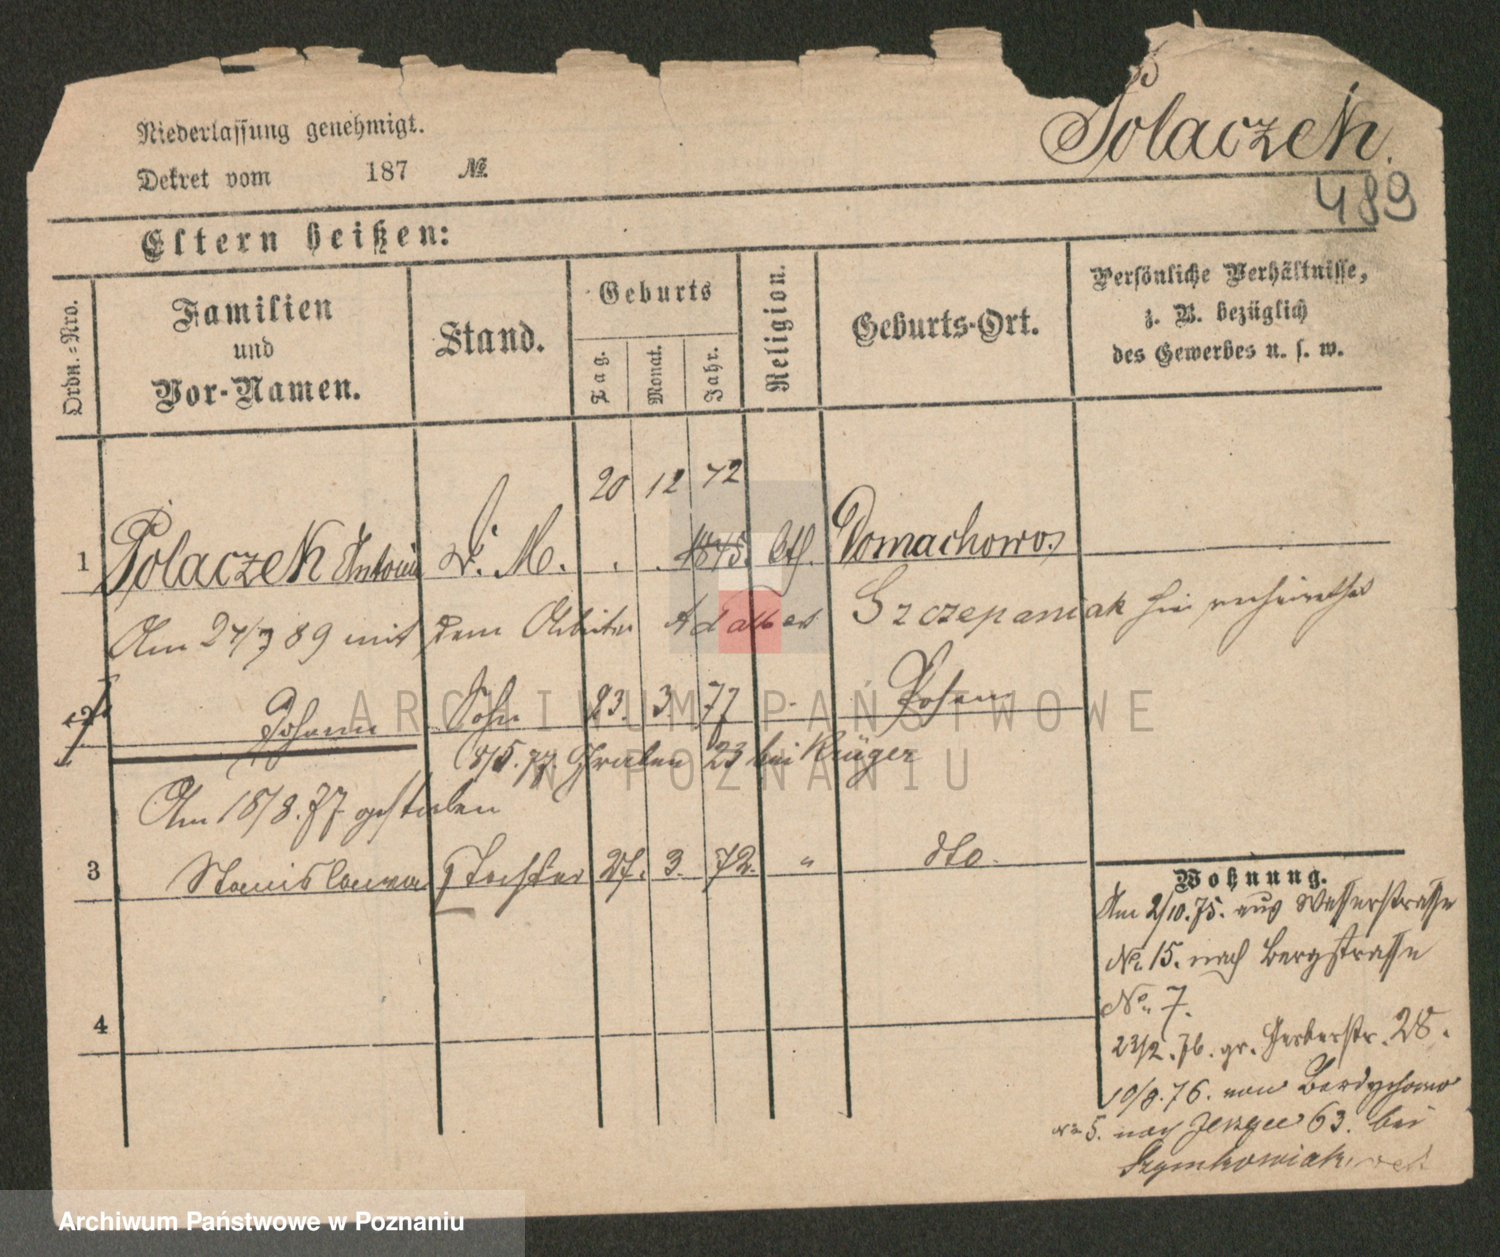 Polaczek.
489
Niederlassung genehmigt.
Dekret vom 187 №
Eltern heißen:
Ordn.-Nro.
Familien
und
Vor-Namen.
Stand.
Geburts
Tag.
Monat.
Jahr.
Religion.
Geburts-Ort.
Persönliche Verhältnisse,
z. B. bezüglich
des Gewerbes u. s. w.
20 12 72
1 Polaczek Antonie M. 1845. cth. Domachowo
Am 27/7 89 mit dem Arbeiter Adalbert Szczepaniak hier verheirathet
2 Johann Sohn 23. 3. 77 Posen
8/5. 77. Graben 23 bei Krüger
Am 18/8. 77 gestorben
3 Stanislawa Tochter 27. 3. 72. " dto.
4
Wohnung.
Am 2/10. 75. aus Wasserstrasse
No. 15. nach Bergstrasse
No. 7.
23/2. 76. gr. Gerberstr. 28.
19/8. 76. von Berdychowo
No 5. nach Jerzyce 63. bei
Szymkowiak
ARCHIWUM PAŃSTWOWE
W POZNANIU
Archiwum Państwowe w Poznaniu